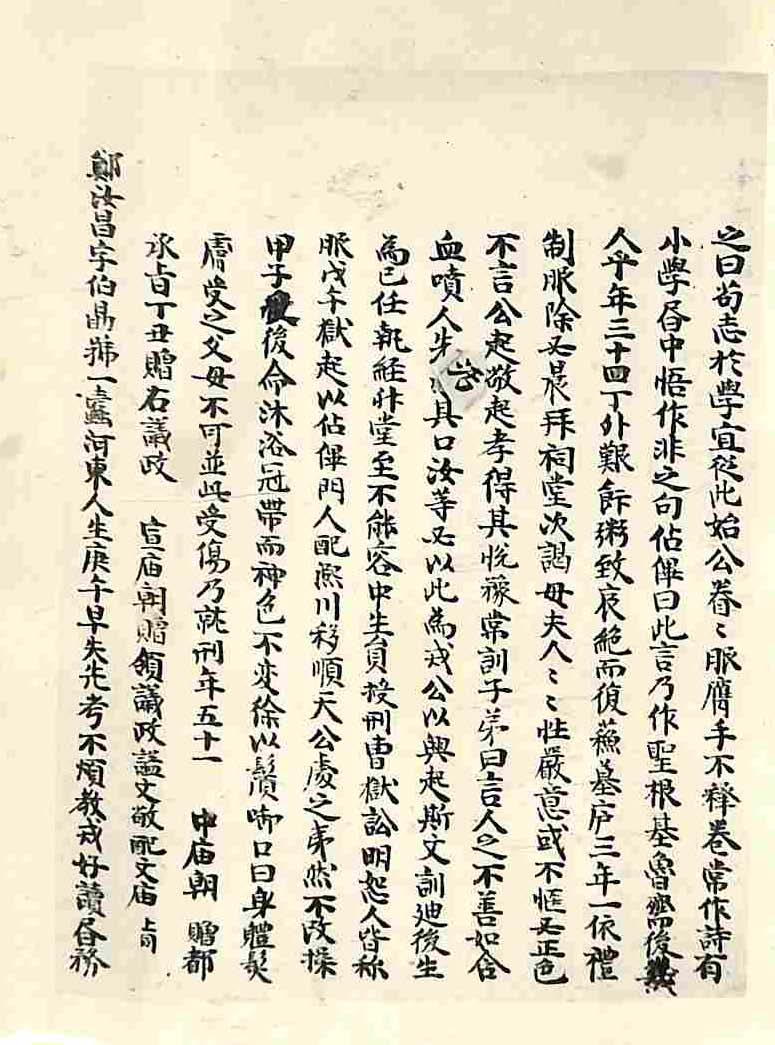 之曰苟志於學宜從此始公眷〻服膺手不釋卷常作詩有
小學書中悟昨非之句佔畢曰此言乃作聖根基魯齋後
人乎年三十四丁外艱飦粥致哀絶而復蘇墓庐三年一依禮
制服除必晨拜祠堂次謁母夫人〻〻性嚴意或不愜必正色
不言公起敬起孝得其悅豫常訓子弟曰言人之不善如含
血噴人先其口汝等必以此為戒公以興起斯文訓迪後生
為已任執經升堂至不能容中生員授刑曺獄訟明恕人皆称
服戊午獄起以佔畢門人配熈川移順天公處之帖然不改操
甲子後命沐浴冠帶而神色不变徐以鬚啣口曰身軆髮
膚受之父母不可並此受傷乃就刑年五十一 中庙朝 贈都
承旨丁丑贈右議政 宣庙朝贈領議政謚文敬配文庙
鄭汝昌字伯勗號一蠹河東人生庚午早失先考不煩敎戒好讀書務